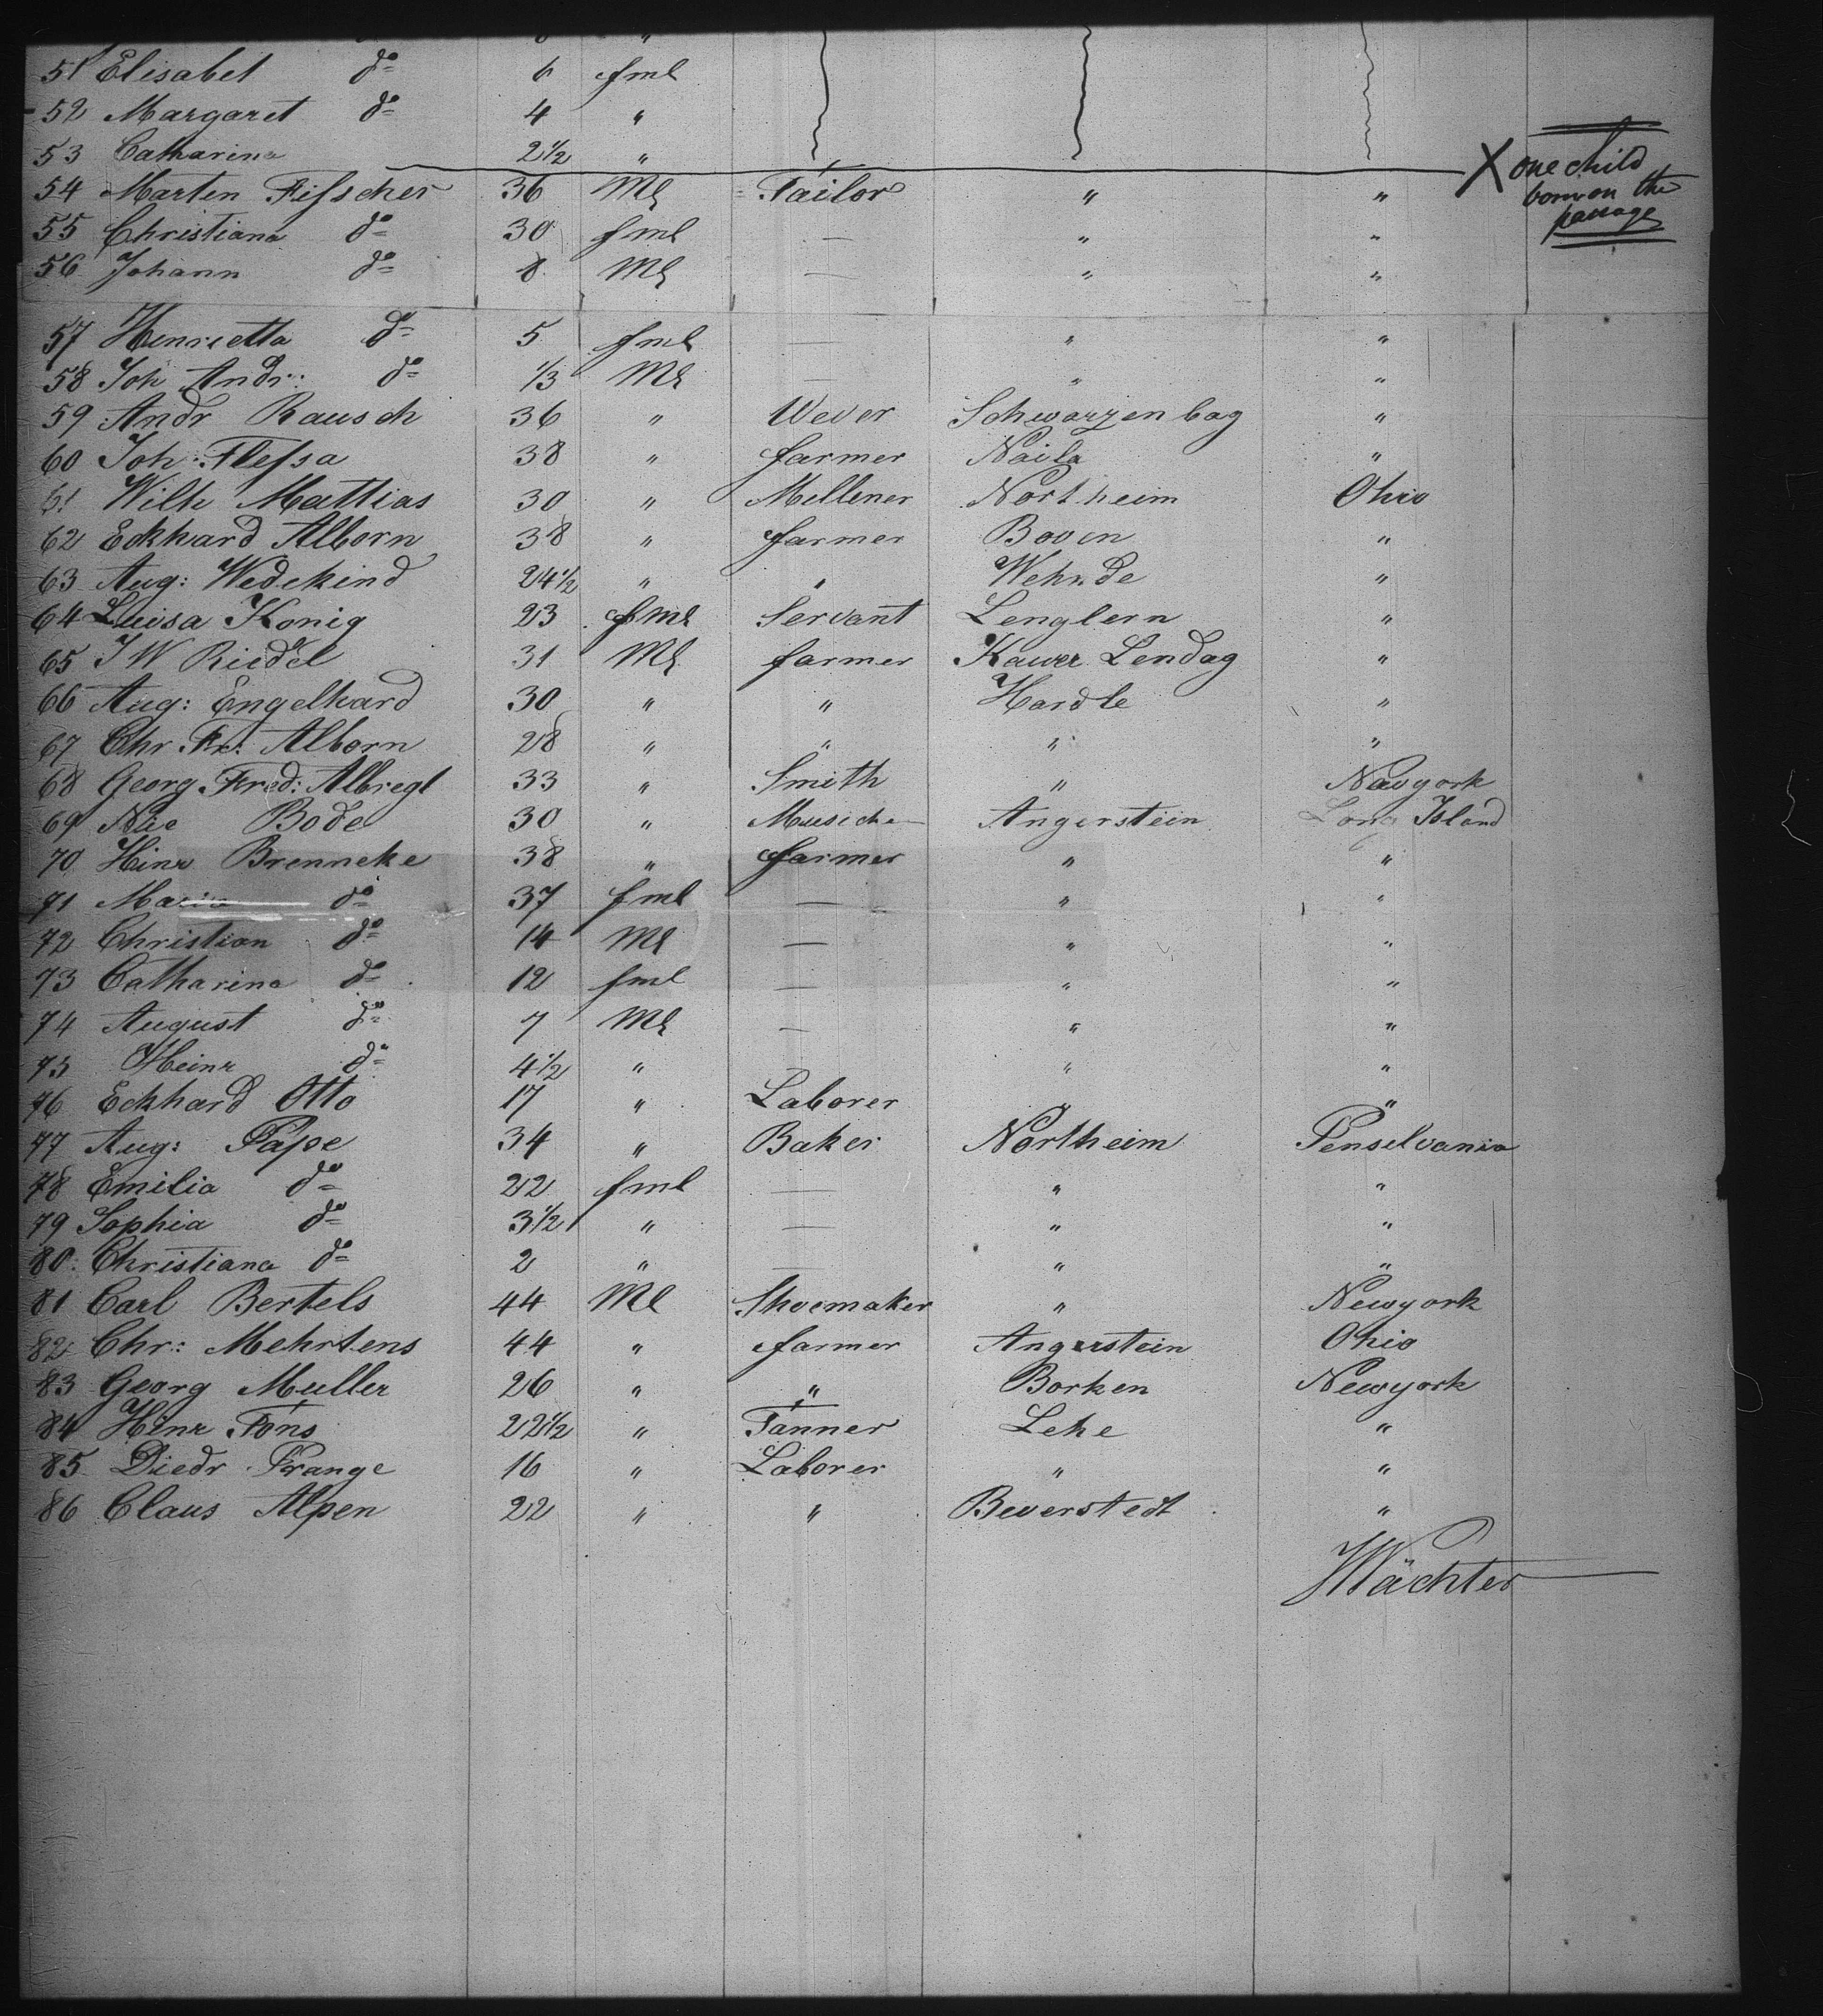 "
51 Elisabet do 6 fml
52 Margaret do 4 "
53 Catharina 2½ "
54 Marten Fisscher 36 Ml Tailor " "
X one child
born on the
passage
55 Christiana do 30 fml — " "
56 Johann do 8 Ml — " "
57 Henrietta do 5 fml — " "
58 Joh Andr: do 1/3 Ml — " "
59 Andr Rausch 36 " Wever Schwarzenbag "
60 Joh: Flessa 38 " farmer Naila "
61 Wilh Mattias 30 " Mellener Northeim Ohio
62 Eckhard Alborn 38 " farmer Boven "
63 Aug: Wedekind 24½ " " Wehnde "
64 Luisa Konig 23 fml Servant Lenglern "
65 J W Riedel 31 Ml farmer Lendag "
66 Aug: Engelhard 30 " " Hardle "
67 Chr. Fr: Alborn 28 " " " "
68 Georg Fred: Albregt 33 " Smith " Newyork
69 Bode 30 " Angerstein Long Island
70 Hinr Brenneke 38 " farmer " "
71 Maria do 37 fml — " "
72 Christian do 14 Ml — " "
73 Catharina do 12 fml — " "
74 August do 7 Ml — " "
75 Heinr do 4½ " — " "
76 Eckhard Otto 17 " Laborer " "
77 Aug: Pape 34 " Baker Northeim Penselvania
78 Emilia do 22 fml — " "
79 Sophia do 3½ " — " "
80 Christiana do 2 " — " "
81 Carl Bertels 44 Ml Shoemaker " Newyork
82 Chr: Mehrtens 44 " farmer Angerstein Ohio
83 Georg Muller 26 " " Borken Newyork
84 Hinr Tons 22½ " Tanner Lehe "
85 Diedr Prange 16 " Laborer " "
86 Claus Alpen 22 " " Beverstedt "
Wächter